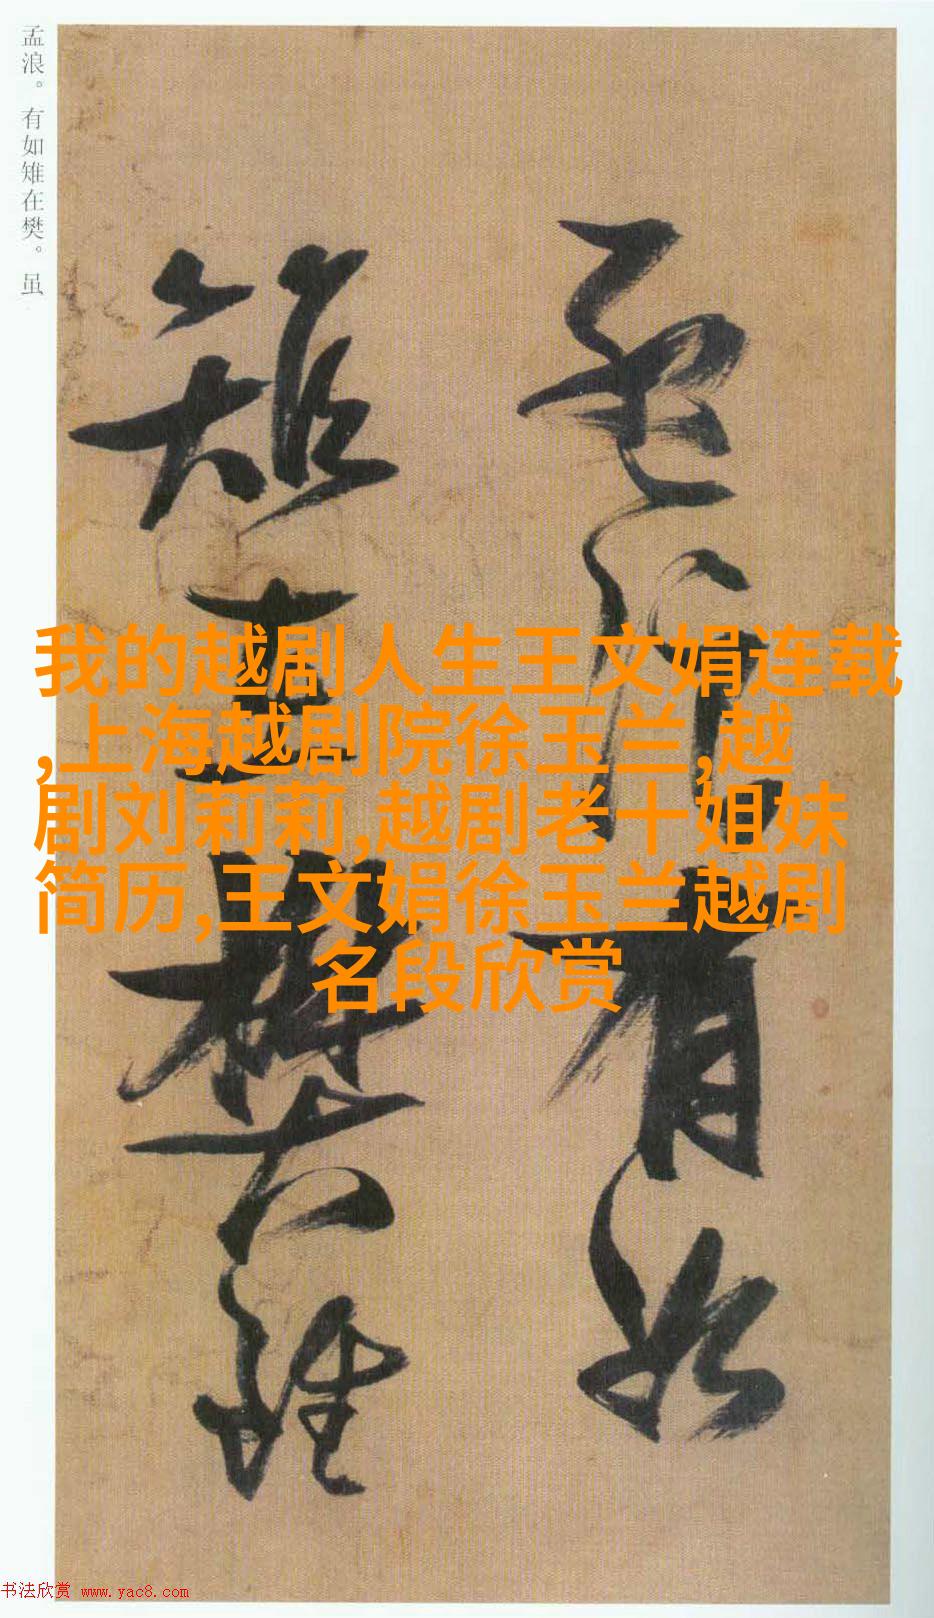 孟浪。有如雉在樊。虽
孟浪有如
雉在樊虽
我的越剧人生王文娟连载
,上海越剧院徐玉兰,越
剧刘莉莉,越剧老十姐妹
简历,王文娟徐玉兰越剧
名段欣赏
书法欣赏 www.yac8.com